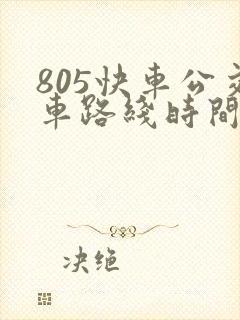 805快車公交
車路綫時間
决绝